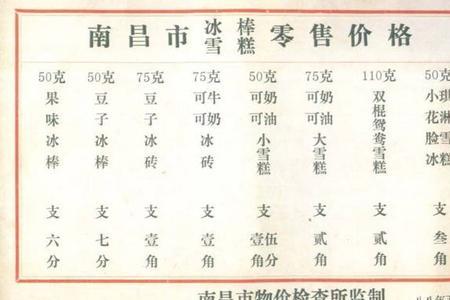 南昌市冰棒雪糕零售价格
50克 果味冰棒 支 六分
50克 豆子冰棒 支 七分
75克 豆子冰砖 支 壹角
75克 可可牛奶冰砖 支 壹角
50克 可可奶油小雪糕 支 壹角伍分
75克 可可奶油大雪糕 支 贰角
110克 双棍鸳鸯雪糕 支 贰角
50克 小花脸冰琪淋雪糕 支 叁角
南昌市物价检查所监制